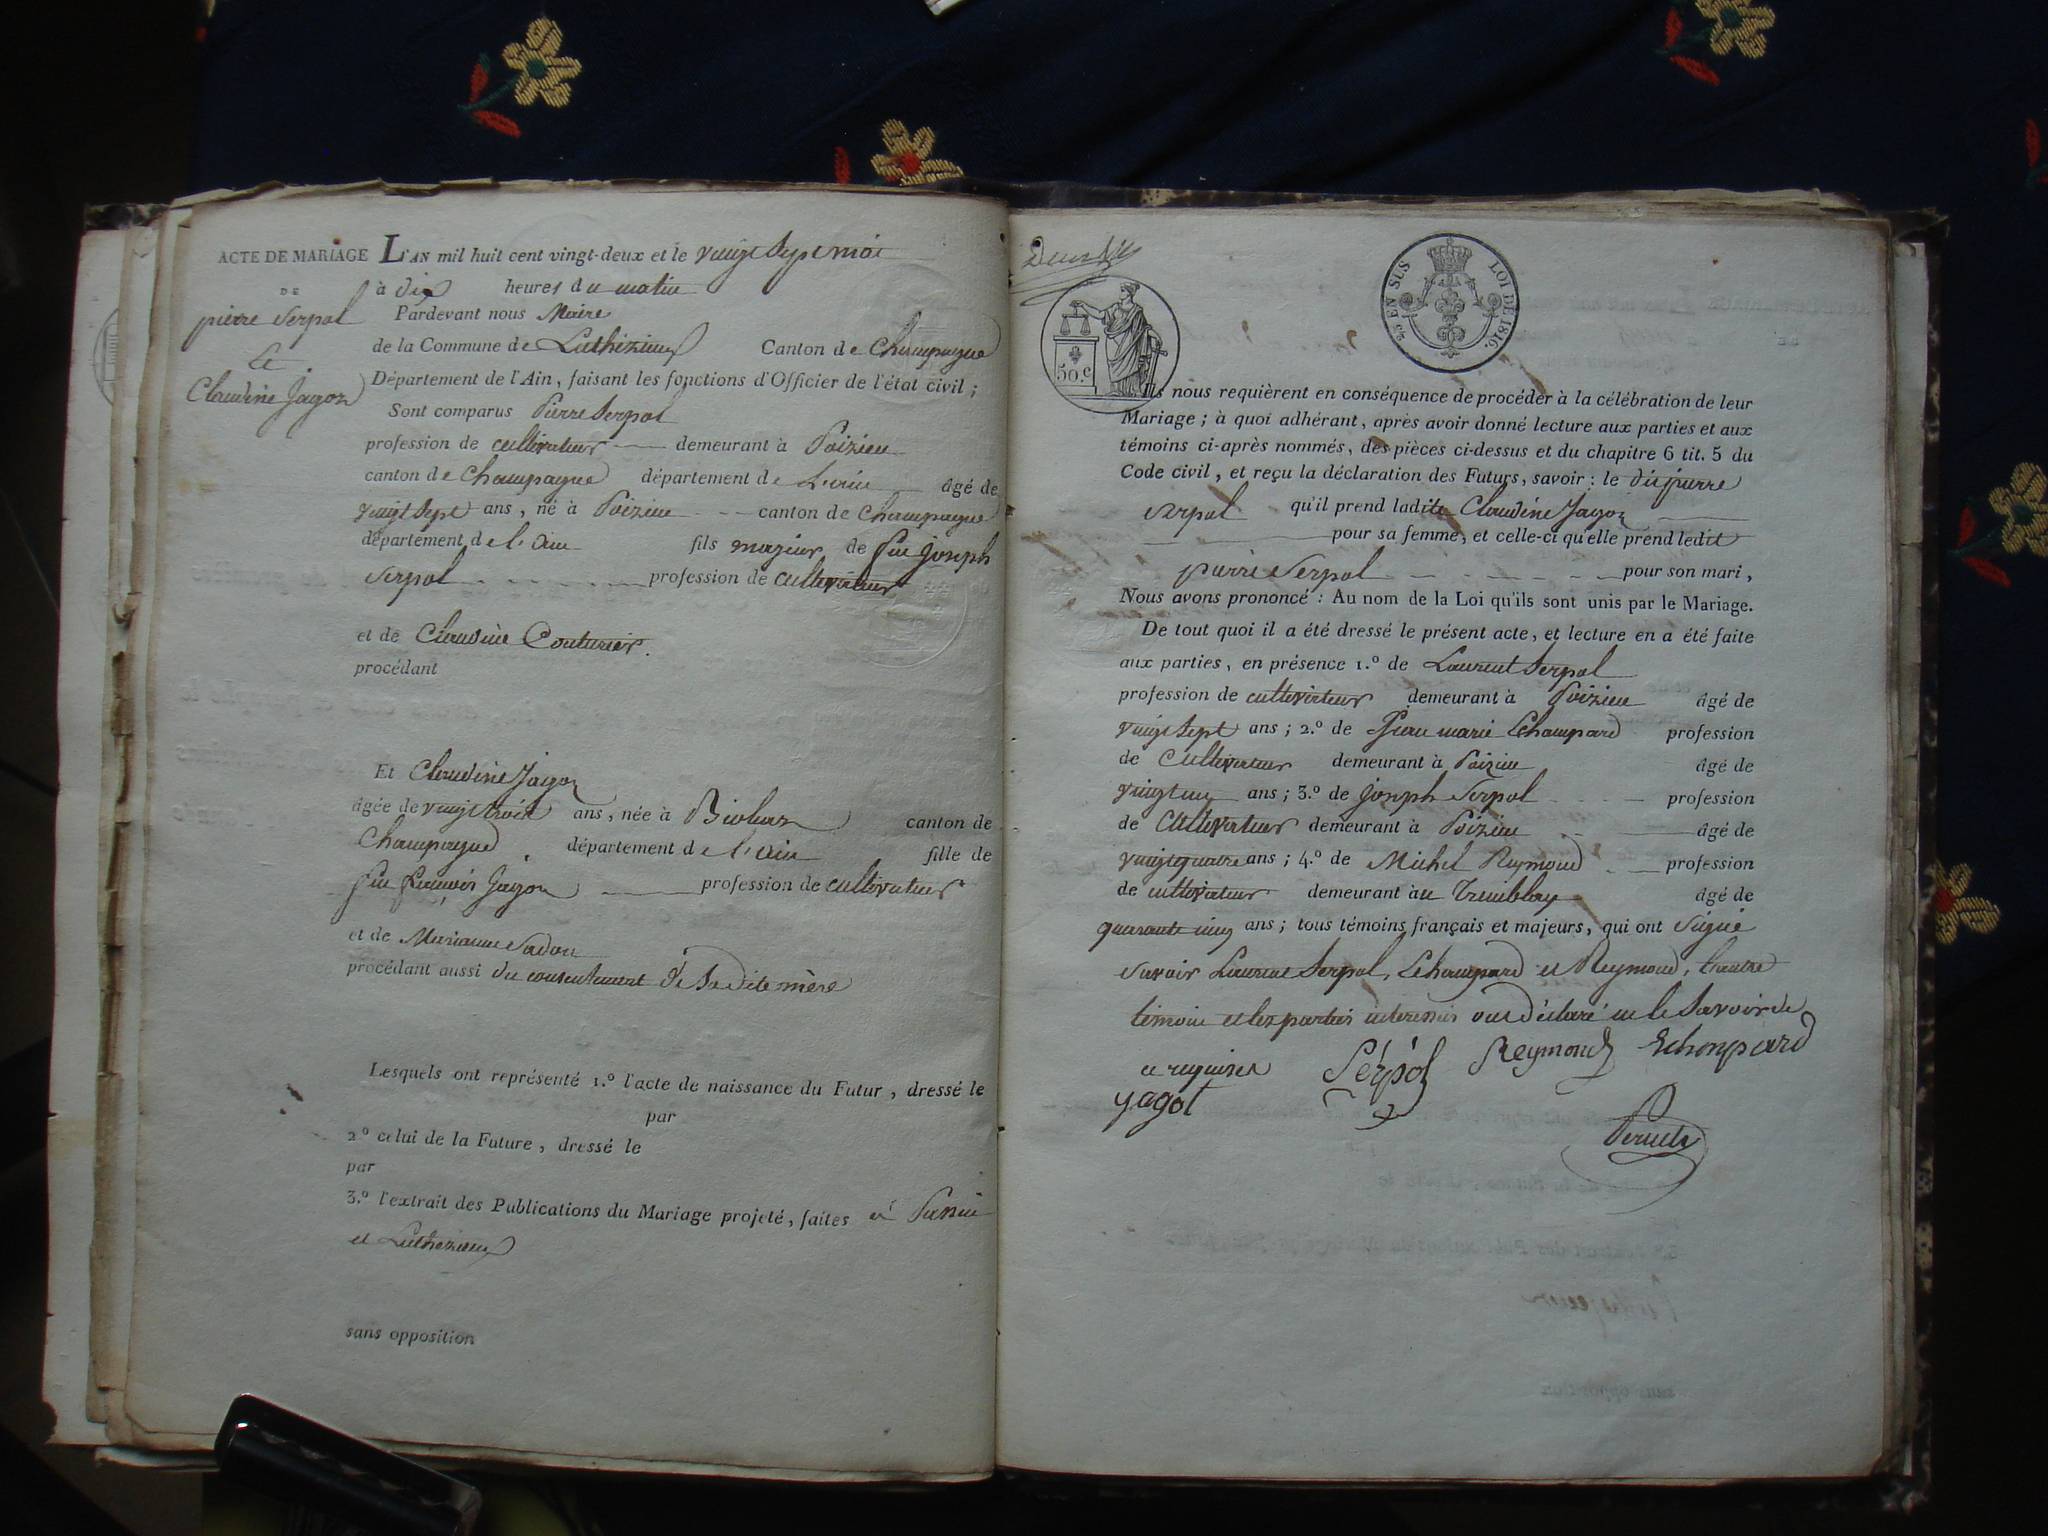 ACTE DE MARIAGE
DE
pierre Serpol
Et
Claudine Jagoz
L'AN mil huit cent vingt-deux et le vingt Sept mai
à dix heures du matin
Pardevant nous Maire
de la Commune de Luthezieux Canton de Champagne
Département de l'Ain, faisant les fonctions d'Officier de l'état civil ;
Sont comparus Pierre Serpol
profession de cultivateur demeurant à Poizieu
canton de Champagne département de L'ain âgé de
vingt Sept ans, né à Poizieu canton de Champagne
département de l'ain fils majeur de feu joseph
Serpol profession de cultivateur
et de Claudine Couturier.
procédant
Et Claudine Jagoz
âgée de vingt trois ans, née à Bioleaz canton de
Champagne département de l'ain fille de
feu francois Jagoz profession de cultivateur
et de Marianne
procédant aussi du consentement de Sa dite mère
Lesquels ont représenté 1.º l'acte de naissance du Futur, dressé le
par
2º celui de la Future, dressé le
par
3.º l'extrait des Publications du Mariage projeté, faites à
et Luthezieux
sans opposition
50.c
25 EN SUS LOI DE 1816.
Ils nous requièrent en conséquence de procéder à la célébration de leur
Mariage ; à quoi adhérant, après avoir donné lecture aux parties et aux
témoins ci-après nommés, des pièces ci-dessus et du chapitre 6 tit. 5 du
Code civil, et reçu la déclaration des Futurs, savoir : le dit pierre
serpol qu'il prend ladite Claudine Jagoz
pour sa femme, et celle-ci qu'elle prend ledit
pierre Serpol pour son mari,
Nous avons prononcé : Au nom de la Loi qu'ils sont unis par le Mariage.
De tout quoi il a été dressé le présent acte, et lecture en a été faite
aux parties, en présence 1.º de Laurent Serpol
profession de cultivateur demeurant à Poizieu âgé de
vingt Sept ans ; 2.º de Jean marie Echampard profession
de Cultivateur demeurant à Poizieu âgé de
vingt un ans ; 3.º de joseph Serpol profession
de Cultivateur demeurant à Poizieu âgé de
vingt quatre ans ; 4.º de Michel Reymond profession
de cultivateur demeurant au Tremblay âgé de
quarante cinq ans ; tous témoins français et majeurs, qui ont Signé
Savoir Laurent Serpol, Echampard et Reymond, l'autre
témoin et les parties interessés ont déclaré ne le Savoir de
ce requises Sérpol Reymond Echonpard
yagot